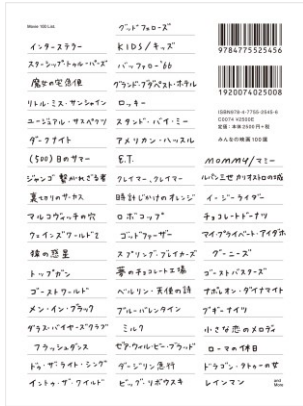 Movie 100 List.
インターステラー
スターシップ・トゥルーパーズ
魔女の宅急便
リトル・ミス・サンシャイン
ユージュアル・サスペクツ
ダークナイト
(500)日のサマー
ジャンゴ 繋がれざる者
裏切りのサーカス
マルコヴィッチの穴
ウェインズワールド2
猿の惑星
トップガン
ゴーストワールド
メン・イン・ブラック
ダラス・バイヤーズクラブ
フラッシュダンス
ドゥ・ザ・ライト・シング
イントゥ・ザ・ワイルド
グッドフェローズ
KIDS/キッズ
バッファロー'66
グランド・ブダペスト・ホテル
ロッキー
スタンド・バイ・ミー
アメリカン・ハッスル
E.T.
クレイマー、クレイマー
時計じかけのオレンジ
ロボコップ
ゴッドファーザー
スプリング・ブレイカーズ
夢のチョコレート工場
ベルリン・天使の詩
ブルーバレンタイン
ミルク
ゼア・ウィル・ビー・ブラッド
ダージリン急行
ビッグ・リボウスキ
9784775525456
1920074025008
ISBN978-4-7755-2545-6
C0074 ¥2500E
定価:本体2500円+税
みんなの映画100選
mommy/マミー
ルパン三世 カリオストロの城
イージーライダー
チョコレートドーナツ
マイ・プライベート・アイダホ
グーニーズ
ゴーストバスターズ
ナポレオン・ダイナマイト
ブギーナイツ
小さな恋のメロディ
ローマの休日
ドラゴン・タトゥーの女
レインマン
and More